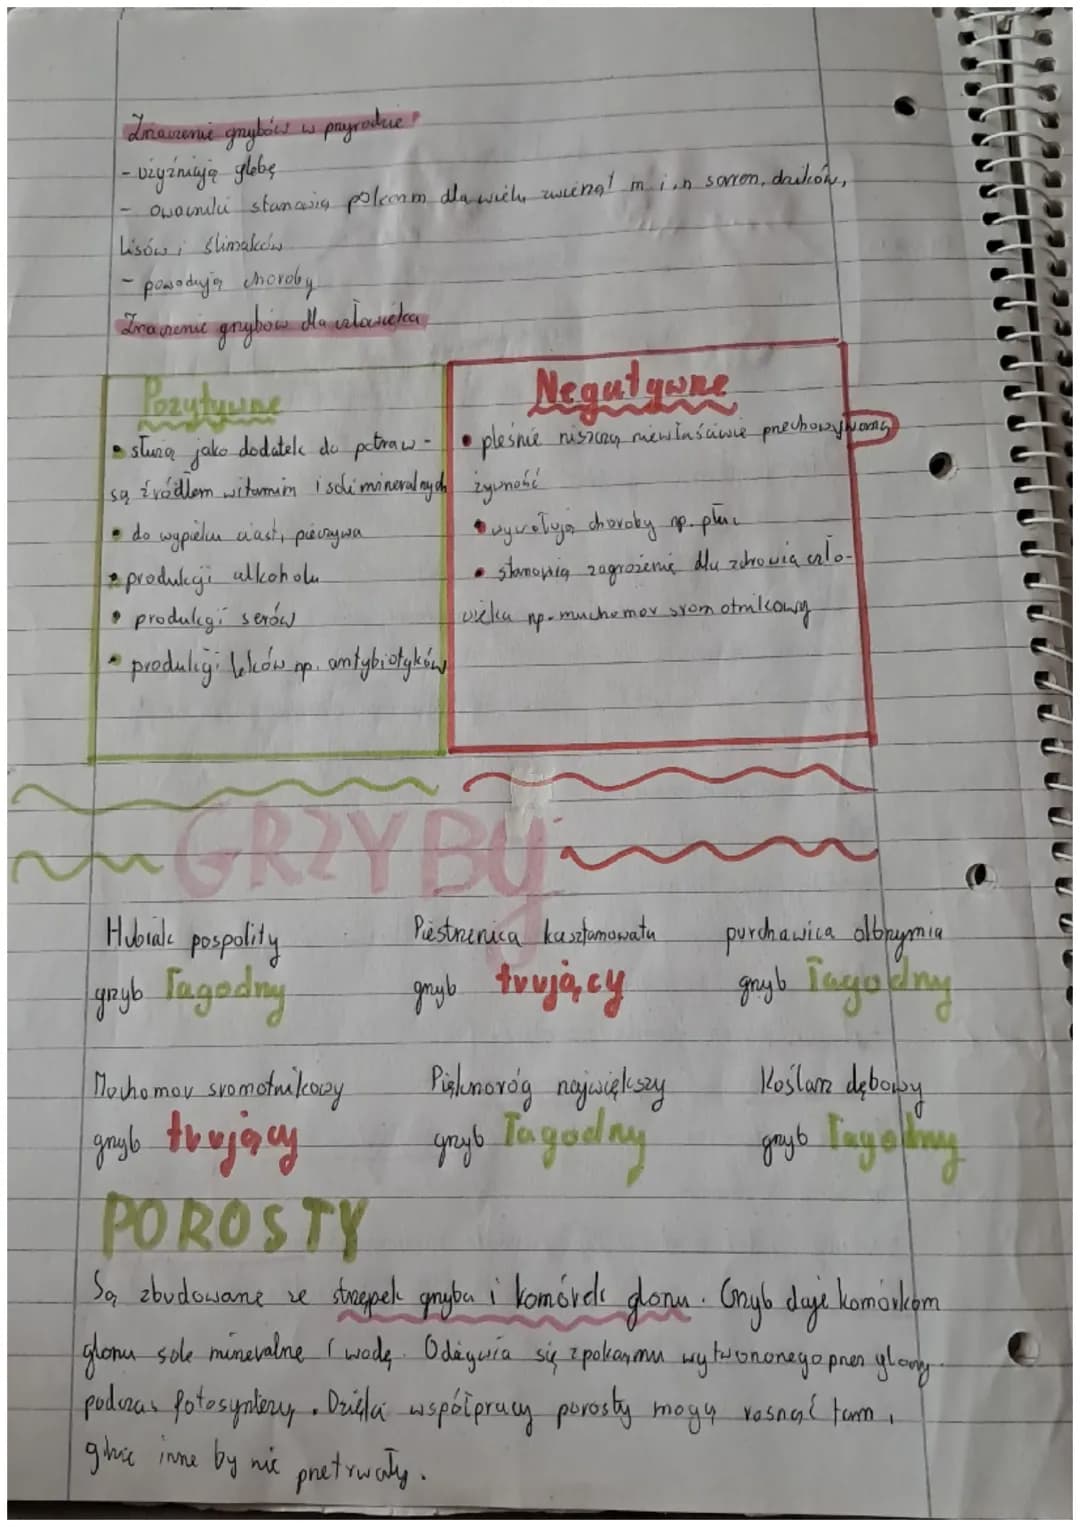 Znaczenie grzybów w przyrodzie
- użyźniają glebę
- owocniki stanowią pokarm dla wielu zwierząt m.i.n sarren, dzików,
lisów i ślimaków
- powodują choroby
Znaczenie grzybów dla człowieka
Pozytywne
• służą jako dodatek do potraw -
są źródłem witamin i soli mineralnych
• do wypieku ciast, pieczywa
• produkcji alkoholu
• produkcji serów
• produkcji leków np. antybiotyków
Negatywne
• pleśnie niszczą niewłaściwie przechowywaną
żywność
• wywołują choroby np. płuc
• stanowią zagrożenie dla zdrowia czło-
wieka np. muchomor sromotnikowy
GRZYBY
Hubiak pospolity
grzyb łagodny
Piestrzenica kasztanowata
grzyb trujący
purchawica olbrzymia
grzyb łagodny
Mochomor sromotnikowy
grzyb trujący
Pięknoróg największy
grzyb łagodny
Koślarz dębowy
grzyb łagodny
POROSTY
Są zbudowane ze strzępek grzyba i komórek glonu. Grzyb daje komórkom
glonu sole mineralne i wodę. Odżywia się z pokarmu wytworzonego przez glony
podczas fotosyntezy. Dzięki współpracy porosty mogą rosnąć tam,
gdzie inne by nie przetrwały.